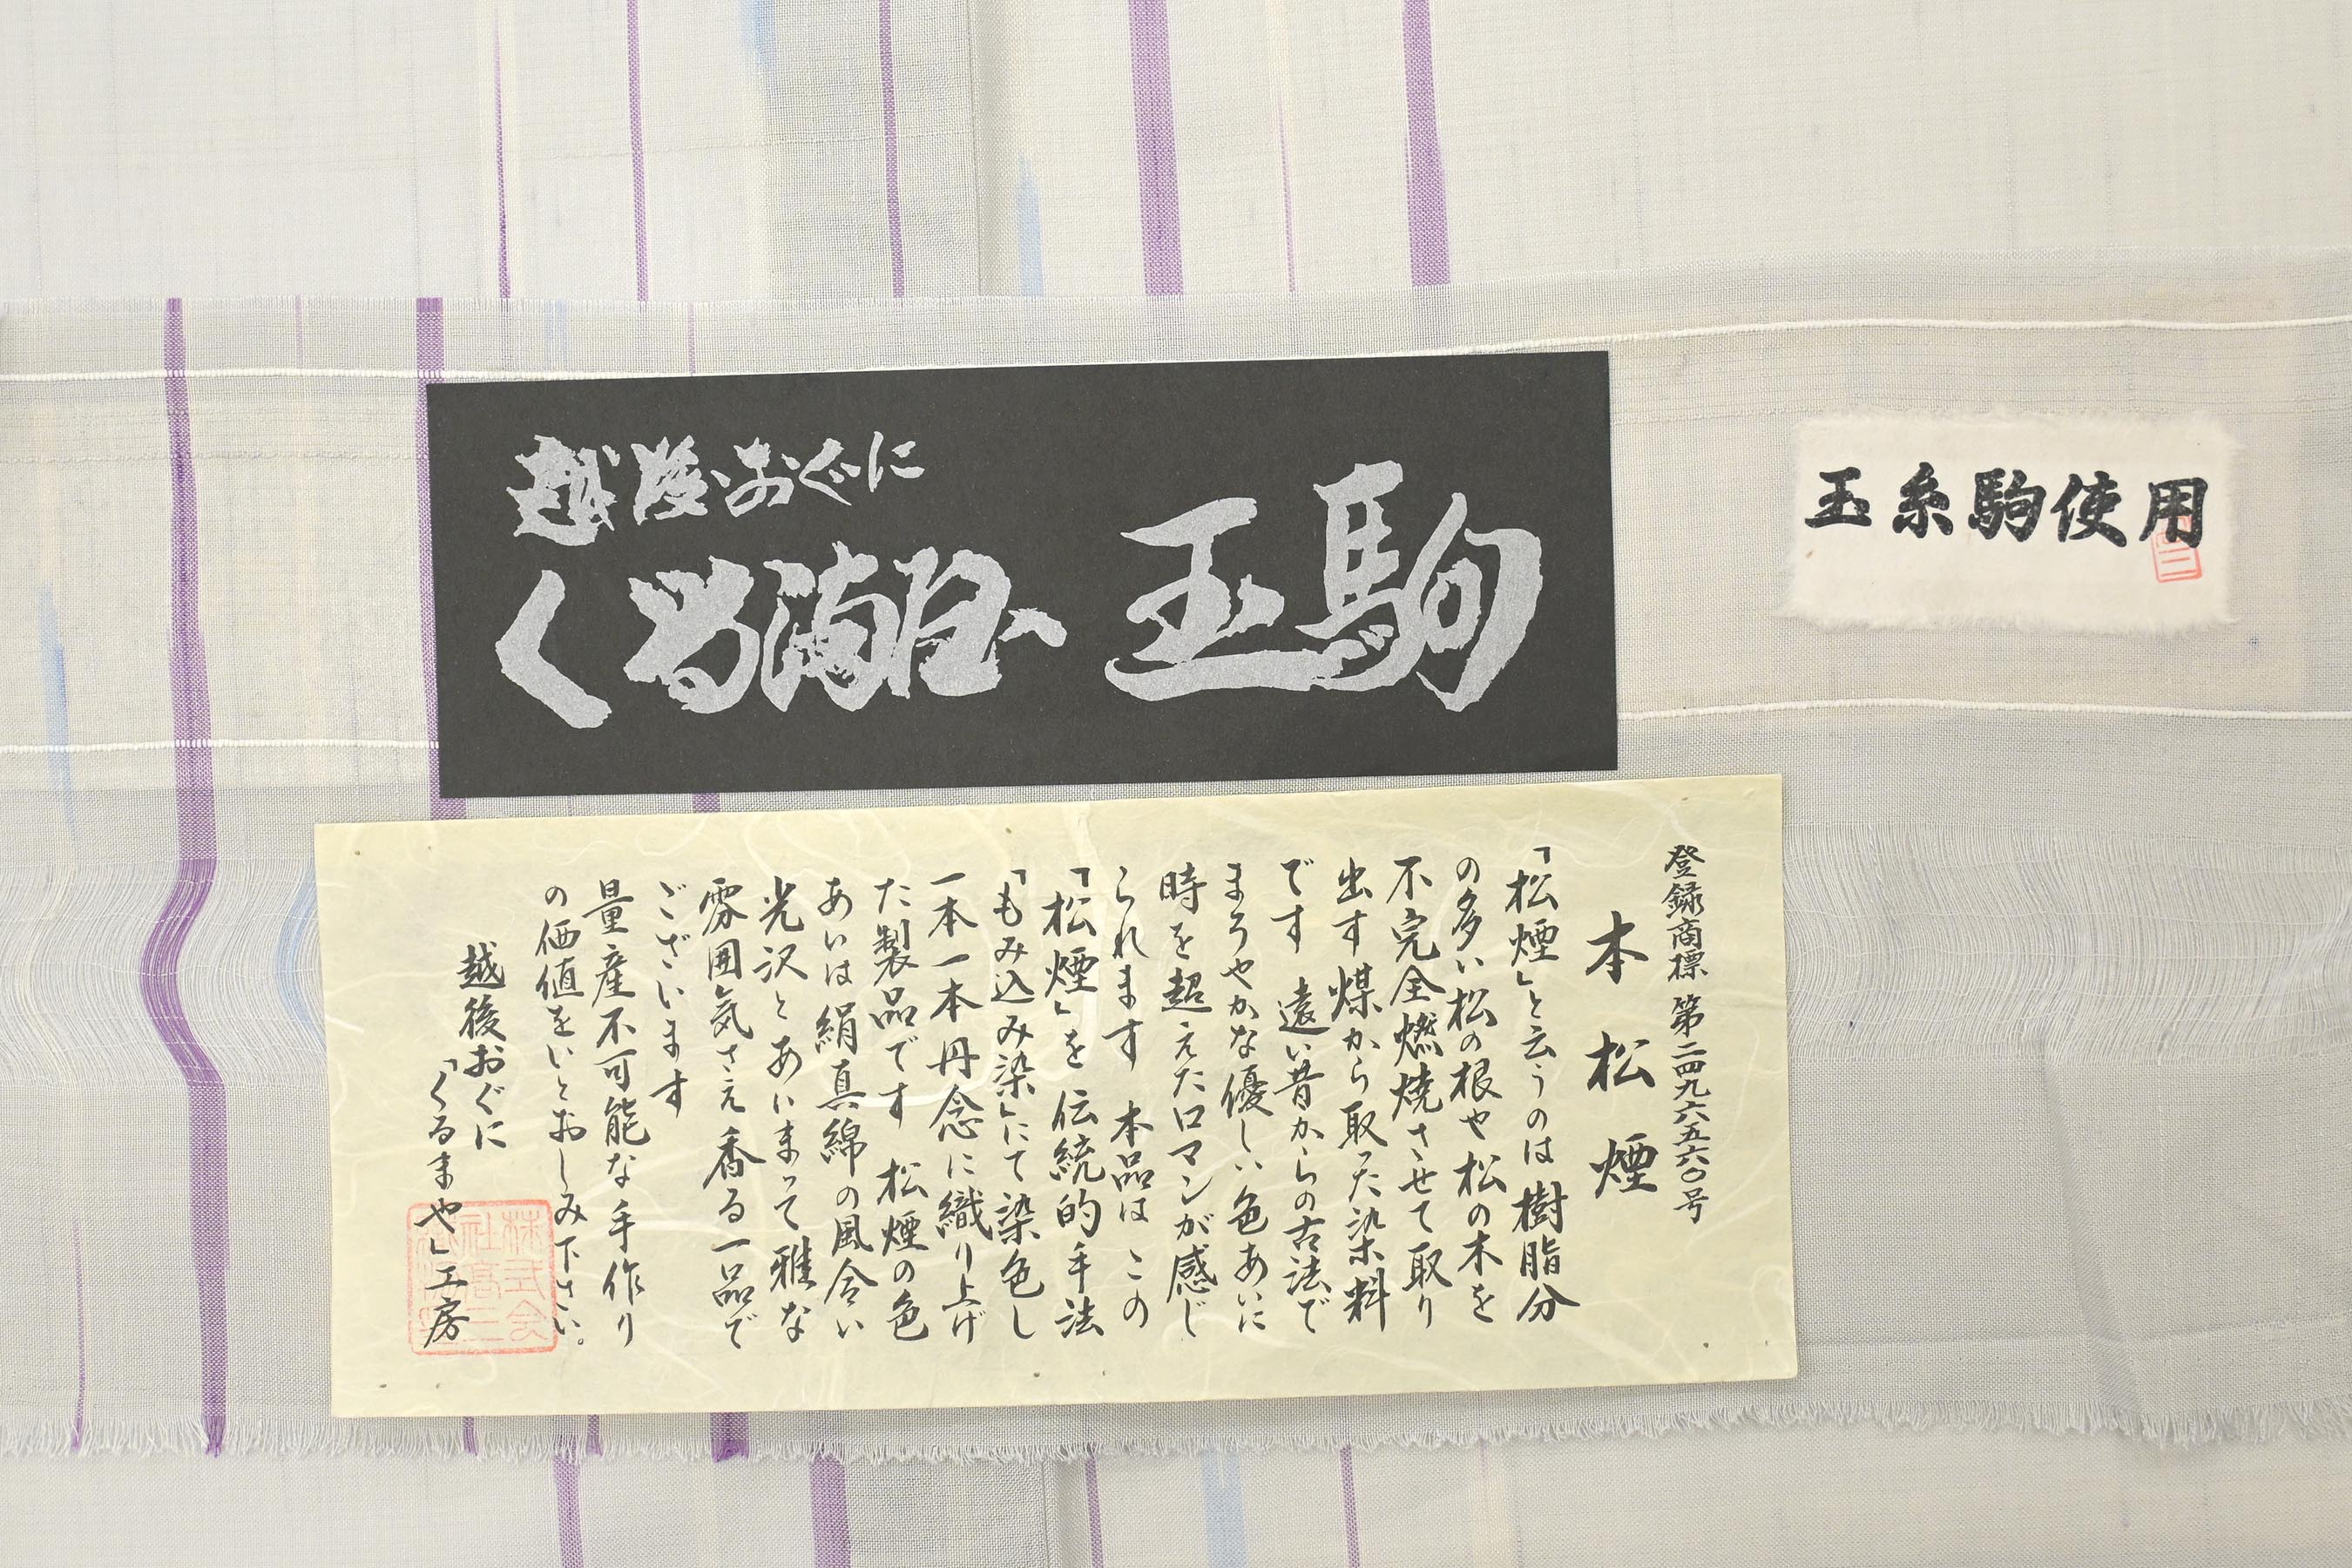 越後おぐに
玉駒
玉糸駒使用
登録商標 第二四九六五六〇号
本松煙
「松煙」と云うのは樹脂分
の多い松の根や松の木を
不完全燃焼させて取り
出す煤から取った染料
です 遠い昔からの古法で
まろやかな優しい色あいに
時を超えたロマンが感じ
られます 本品は この
「松煙」を 伝統的手法
「もみ込み染」にて染色し
一本一本丹念に織り上げ
た製品です 松煙の色
あいは絹真綿の風合い
光沢とあいまって雅な
雰囲気さえ香る一品で
ございます
量産不可能な手作り
の価値をいとおしみ下さい。
越後おぐに
「くるまや」工房
株式会
社高三